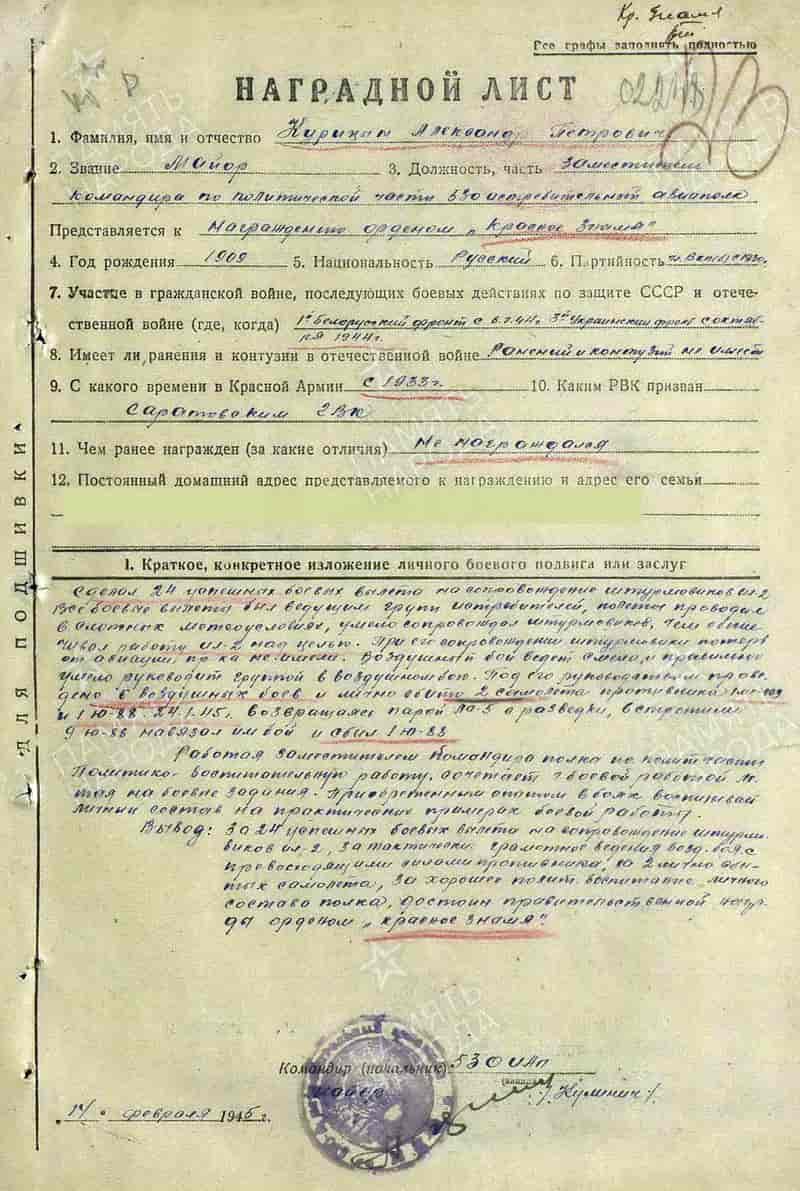 Кр. Знамя
Все графы заполнять полностью
НАГРАДНОЙ ЛИСТ
1. Фамилия, имя и отчество Курицин Александр Петрович
2. Звание Майор 3. Должность, часть Заместитель
командира по политической части 530 истребительный авиаполк
Представляется к награждению орденом „Красное Знамя"
4. Год рождения 1909 5. Национальность Русский 6. Партийность
7. Участие в гражданской войне, последующих боевых действиях по защите СССР и отече-
ственной войне (где, когда) 1й Белорусский фронт с 44г. 3й Украинский фронт с октяб-
ря 1944г.
8. Имеет ли ранения и контузии в отечественной войне Ранений и контузий не имеет
9. С какого времени в Красной Армии С 1933г. 10. Каким РВК призван
Саратовским ГВК
11. Чем ранее награжден (за какие отличия) Не награждался
12. Постоянный домашний адрес представляемого к награждению и адрес его семьи
I. Краткое, конкретное изложение личного боевого подвига или заслуг
Сделал 24 успешных боевых вылета на сопровождение штурмовиков ил-2
Все боевые вылеты был ведущим групп истребителей, полеты проводил
в сложных метеоусловиях, умело сопровождал штурмовиков, чем обеспе-
чивал работу ил-2 над целью. При его сопровождении штурмовики потерь
от авиации пр-ка не имели. Воздушный бой ведет смело и правильно
умело руководит группой в воздушном бою. Под его руководством прове-
дено 6 воздушных боев и лично сбито 2 самолета противника
и 1 Ю-88. 24.1.45г. возвращаясь парой Ла-5 с разведки, встретили
9 Ю-88 навязал им бой и сбил 1 Ю-88
Работая заместителем командира полка по политчасти
Политико-воспитательную работу, сочетает с боевой работой ле-
тая на боевые задания. Приобретенным опытом в боях воспитывает
личный состав на практических примерах боевой работы.
Вывод: За 24 успешных боевых вылета на сопровождение штурмо-
виков ил-2, за тактически грамотное ведения возд. боя с
превосходящими силами противника, за 2 лично сби-
тых самолета, за хорошее полит. воспитание личного
состава полка, достоин правительственной награ-
ды орденом „Красное Знамя".
ДЛЯ ПОДШИВКИ
Командир (начальник) 530 ИАП
майор /Куминич/
"14" февраля 1945 г.